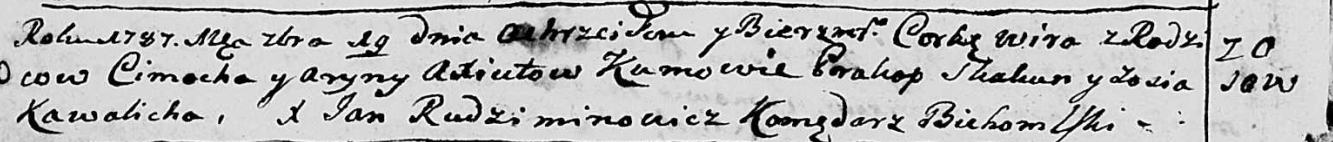 Roku 1787. Mca zbra 19 dnia ochrzciłem y Bierzmł. Corkę wira z Rodzi
cow Cimocha y aryny Kumowie Prakop Skakun y Zosia
Kawalicha, X Jan Rudziminowicz Komędarz Bichomlski -